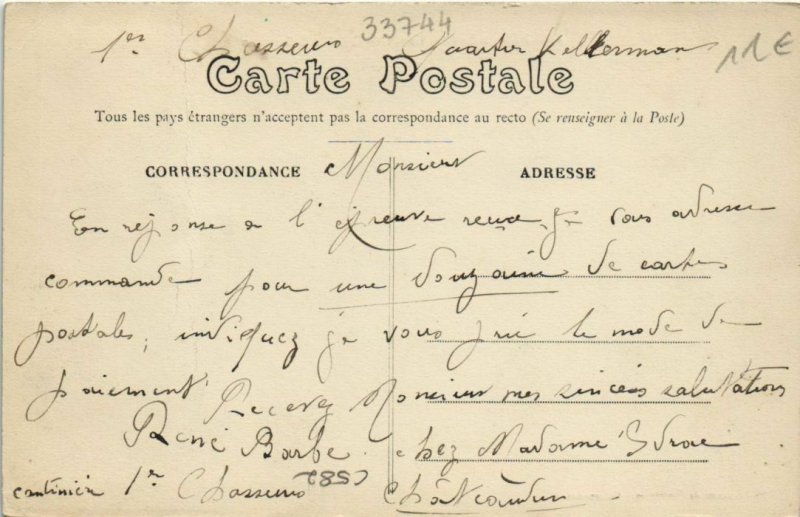 33744
1er Chasseurs Quartier Kellerman 11€
Carte Postale
Tous les pays étrangers n'acceptent pas la correspondance au recto (Se renseigner à la Poste)
CORRESPONDANCE Monsieur ADRESSE
En réponse a l'épreuve reçue, je vous adresse
commande pour une douzaine de cartes
postales, indiquez je vous prie le mode de
paiement Recevez Monsieur mes sincères salutations
René Barbe chez Madame
cantinière 1er Chasseurs Châteaudun
C582